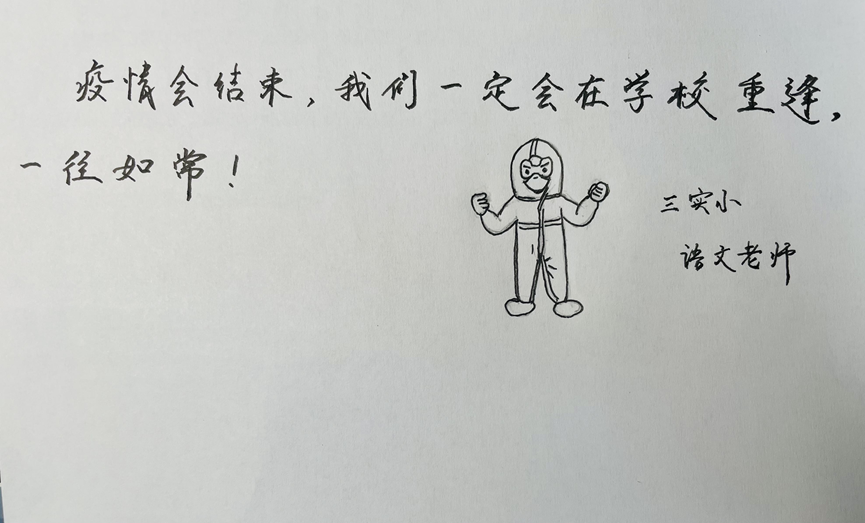 疫情会结束，我们一定会在学校重逢，
一往如常！
三实小
语文老师